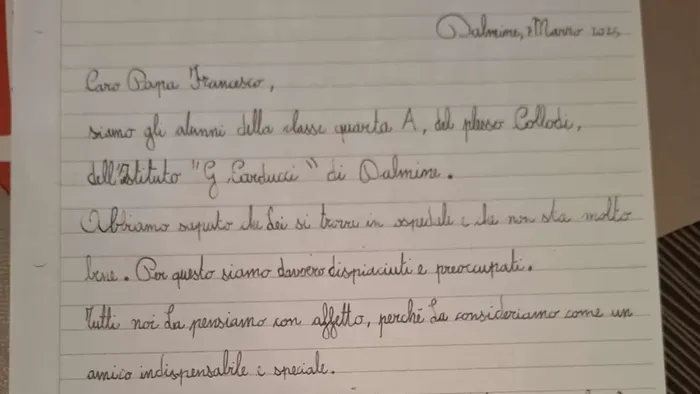 Dalmine, 7 Marzo 2025
Caro Papa Francesco,
siamo gli alunni della classe quarta A, del plesso Collodi,
dell'Istituto "G. Carducci" di Dalmine.
Abbiamo saputo che Lei si trova in ospedale e che non sta molto
bene. Per questo siamo davvero dispiaciuti e preoccupati.
Tutti noi La pensiamo con affetto, perché La consideriamo come un
amico indispensabile e speciale.